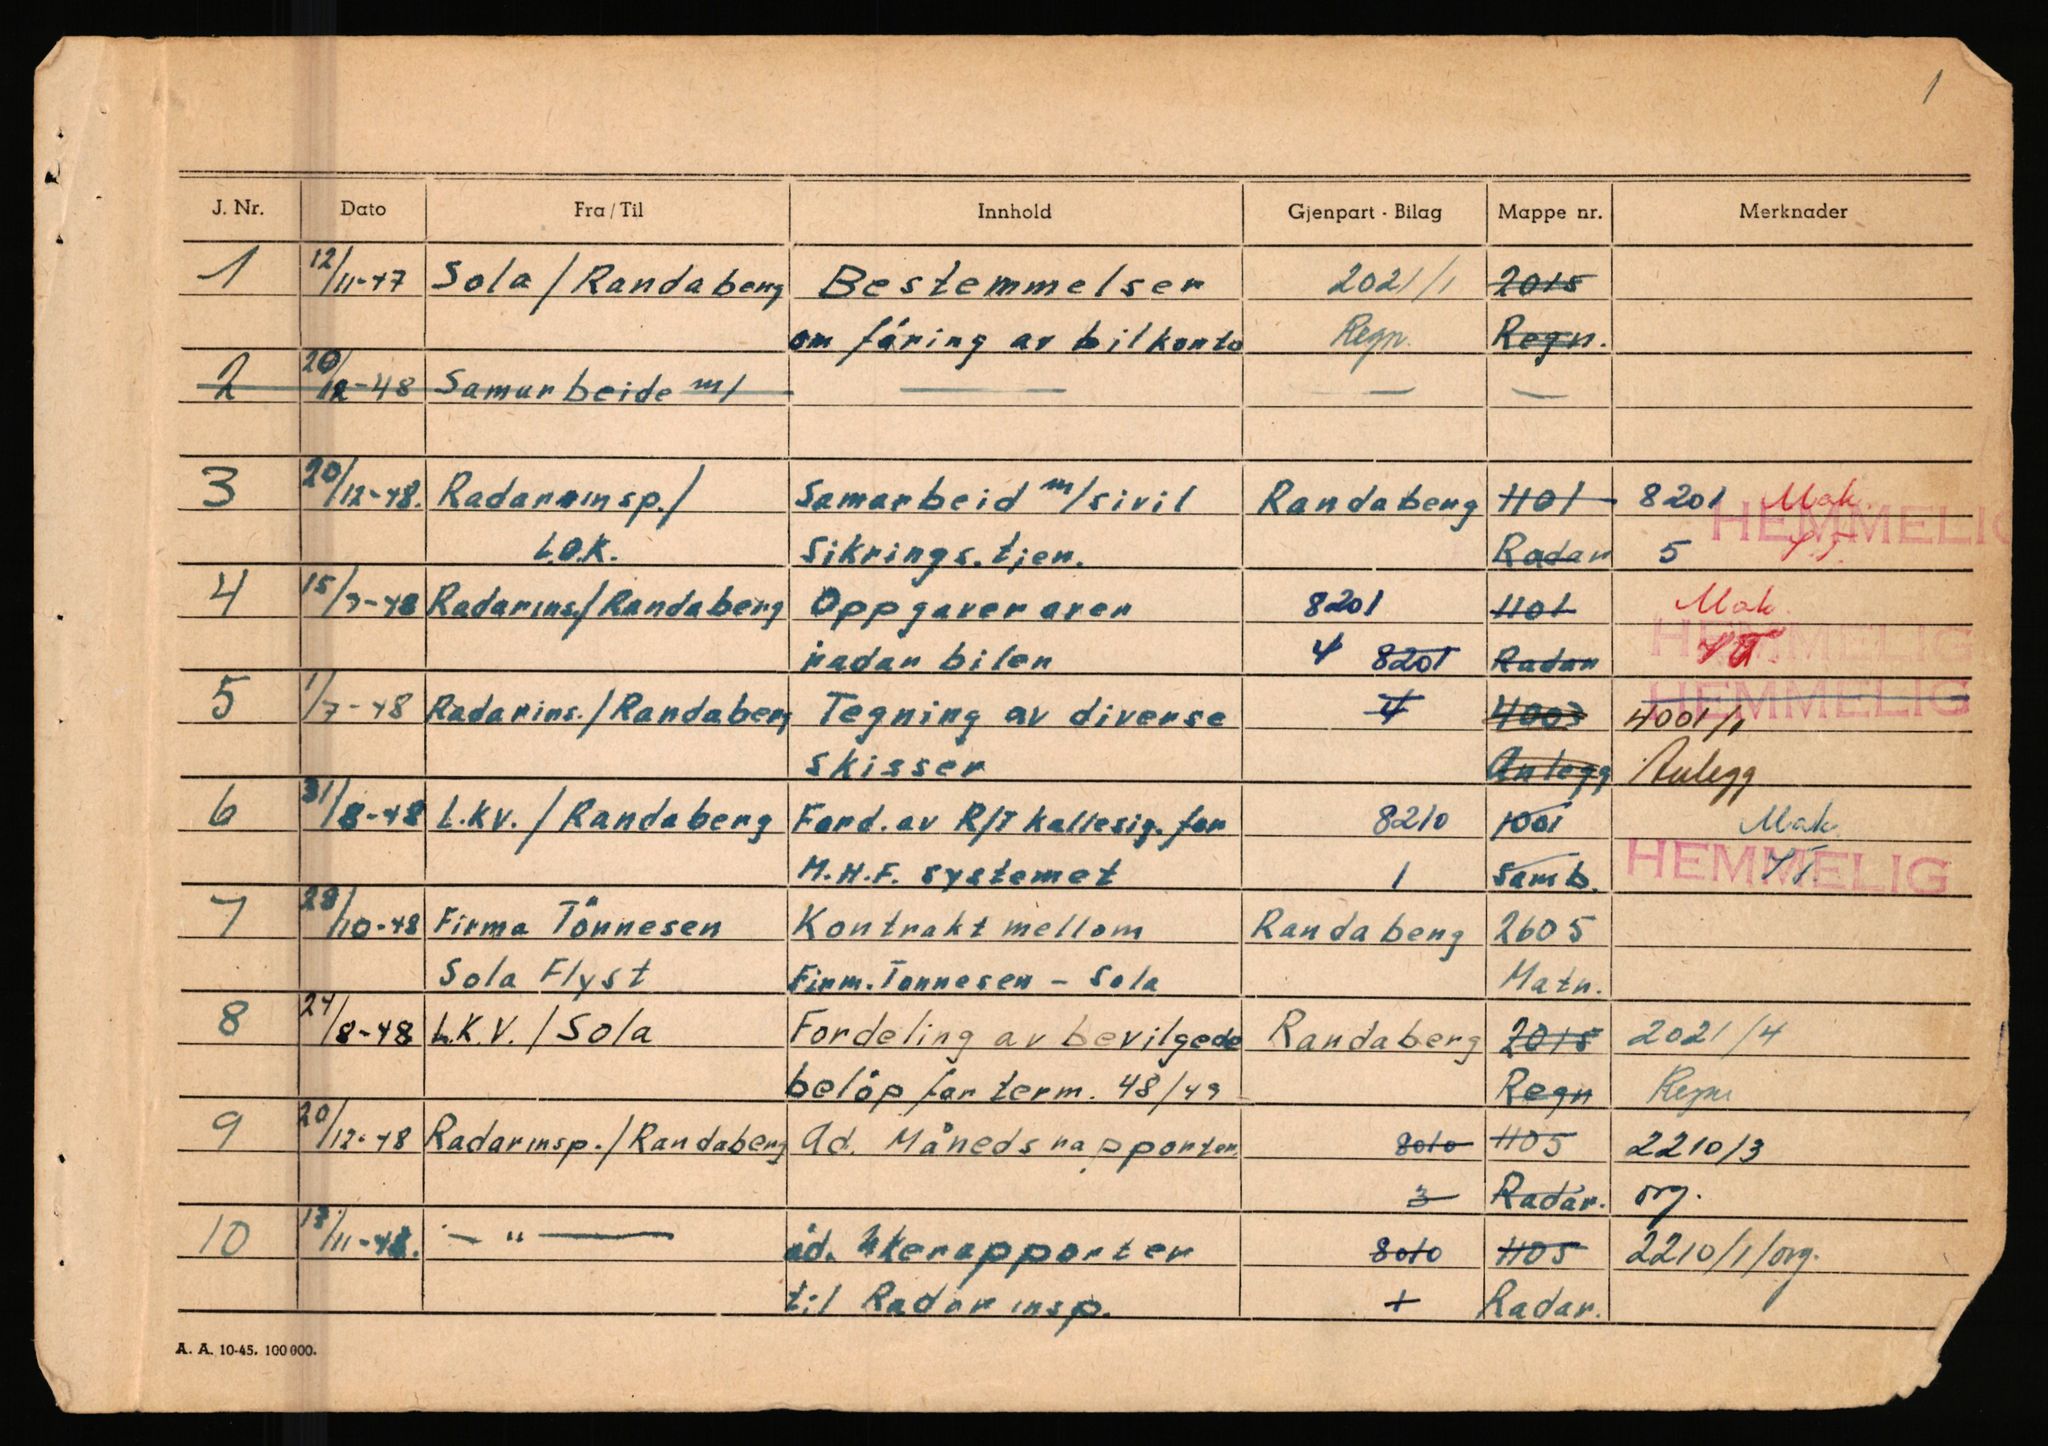 1
J. Nr. Dato Fra/Til Innhold Gjenpart - Bilag Mappe nr. Merknader
1 12/11-47 Sola / Randaberg Bestemmelser 2021/1 2015
om föring av bilkonto Regn. Regn.
2 20/12-48 Samarbeide m/ — — —
3 20/12-48. Radarinsp./ Samarbeid m/sivil Randaberg 1101 8201 Mak.
HEMMELIG
L.O.K. Sikrings.tjen. Radar 5
4 15/9-48 Radarins/Randaberg Oppgaver over 8201 1101 Mak.
HEMMELIG
radar biler 4 8201 Radar
HEMMELIG
5 1/7-48 Radarins./Randaberg Tegning av diverse 4 4003 4001/1
skisser Anlegg Anlegg
6 31/8-48 L.KV. / Randaberg Ford. av R/T kallesig. for 8210 1001 Mak.
HEMMELIG
M.H.F. systemet 1 Samb.
7 28/10-48 Firma Tönnesen Kontrakt mellom Randaberg 2605
Sola Flyst Firm. Tonnesen - Sola Matr.
8 24/8-48 L.K.V. / Sola Fordeling av bevilgede Randaberg 2015 2021/4
belöp for term. 48/49 Regn Regn
9 20/12-48 Radarinsp./Randaberg Ad. Månedsrapporter 8010 1105 2210/3
3 Radar. org.
10 17/11-48. — " — ad. Ukerapporter 8010 1105 2210/1/org.
til Radarinsp. + Radar.
A. A. 10-45. 100 000.